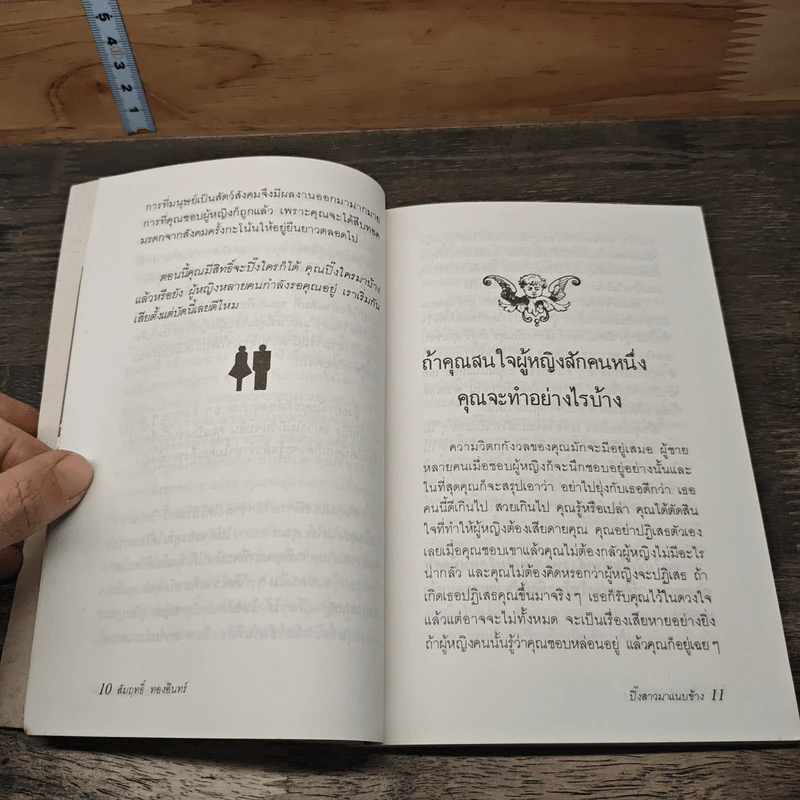 5 4 3 2 1
การที่มนุษย์เป็นสัตว์สังคมจึงมีผลงานออกมามากมาย
การที่คุณชอบผู้หญิงก็ถูกแล้ว เพราะคุณจะได้สืบทอด
มรดกจากสังคมครั้งกะโน้นให้อยู่ยืนยาวตลอดไป
ตอนนี้คุณมีสิทธิ์จะปิ๊งใครก็ได้ คุณปิ๊งใครมาบ้าง
แล้วหรือยัง ผู้หญิงหลายคนกำลังรอคุณอยู่ เราเริ่มกัน
เสียตั้งแต่บัดนี้เลยดีไหม
10 สัมฤทธิ์ ทองอินทร์
ถ้าคุณสนใจผู้หญิงสักคนหนึ่ง
คุณจะทำอย่างไรบ้าง
ความวิตกกังวลของคุณมักจะมีอยู่เสมอ ผู้ชาย
หลายคนเมื่อชอบผู้หญิงก็จะนึกชอบอยู่อย่างนั้นและ
ในที่สุดคุณก็จะสรุปเอาว่า อย่าไปยุ่งกับเธอดีกว่า เธอ
คนนี้ดีเกินไป สวยเกินไป คุณรู้หรือเปล่า คุณได้ตัดสิน
ใจที่ทำให้ผู้หญิงต้องเสียดายคุณ คุณอย่าปฏิเสธตัวเอง
เลยเมื่อคุณชอบเขาแล้วคุณไม่ต้องกลัวผู้หญิงไม่มีอะไร
น่ากลัว และคุณไม่ต้องคิดหรอกว่าผู้หญิงจะปฏิเสธ ถ้า
เกิดเธอปฏิเสธคุณขึ้นมาจริงๆ เธอก็รับคุณไว้ในดวงใจ
แล้วแต่อาจจะไม่ทั้งหมด จะเป็นเรื่องเสียหายอย่างยิ่ง
ถ้าผู้หญิงคนนั้นรู้ว่าคุณชอบหล่อนอยู่ แล้วคุณก็อยู่เฉยๆ
ปิ๊งสาวมาแนบข้าง 11